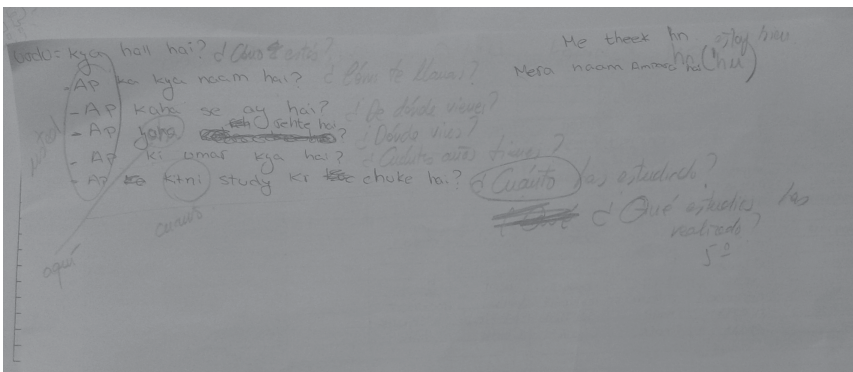 kyaa hall hai? ¿Cómo estás?
Me theek hn estoy bien
- AP ka kya naam hai? ¿Cómo te llamas?
Mera naam hai (hu)
- AP kaha se ay hai? ¿De dónde vienes?
- AP jaha rehte hai? ¿Dónde vives?
- AP ki umar kya hai? ¿Cuántos años tienes?
- AP kitni study kr chuke hai? ¿Cuánto has estudiado?
¿Qué estudios has
realizado?
5º
usted
aquí